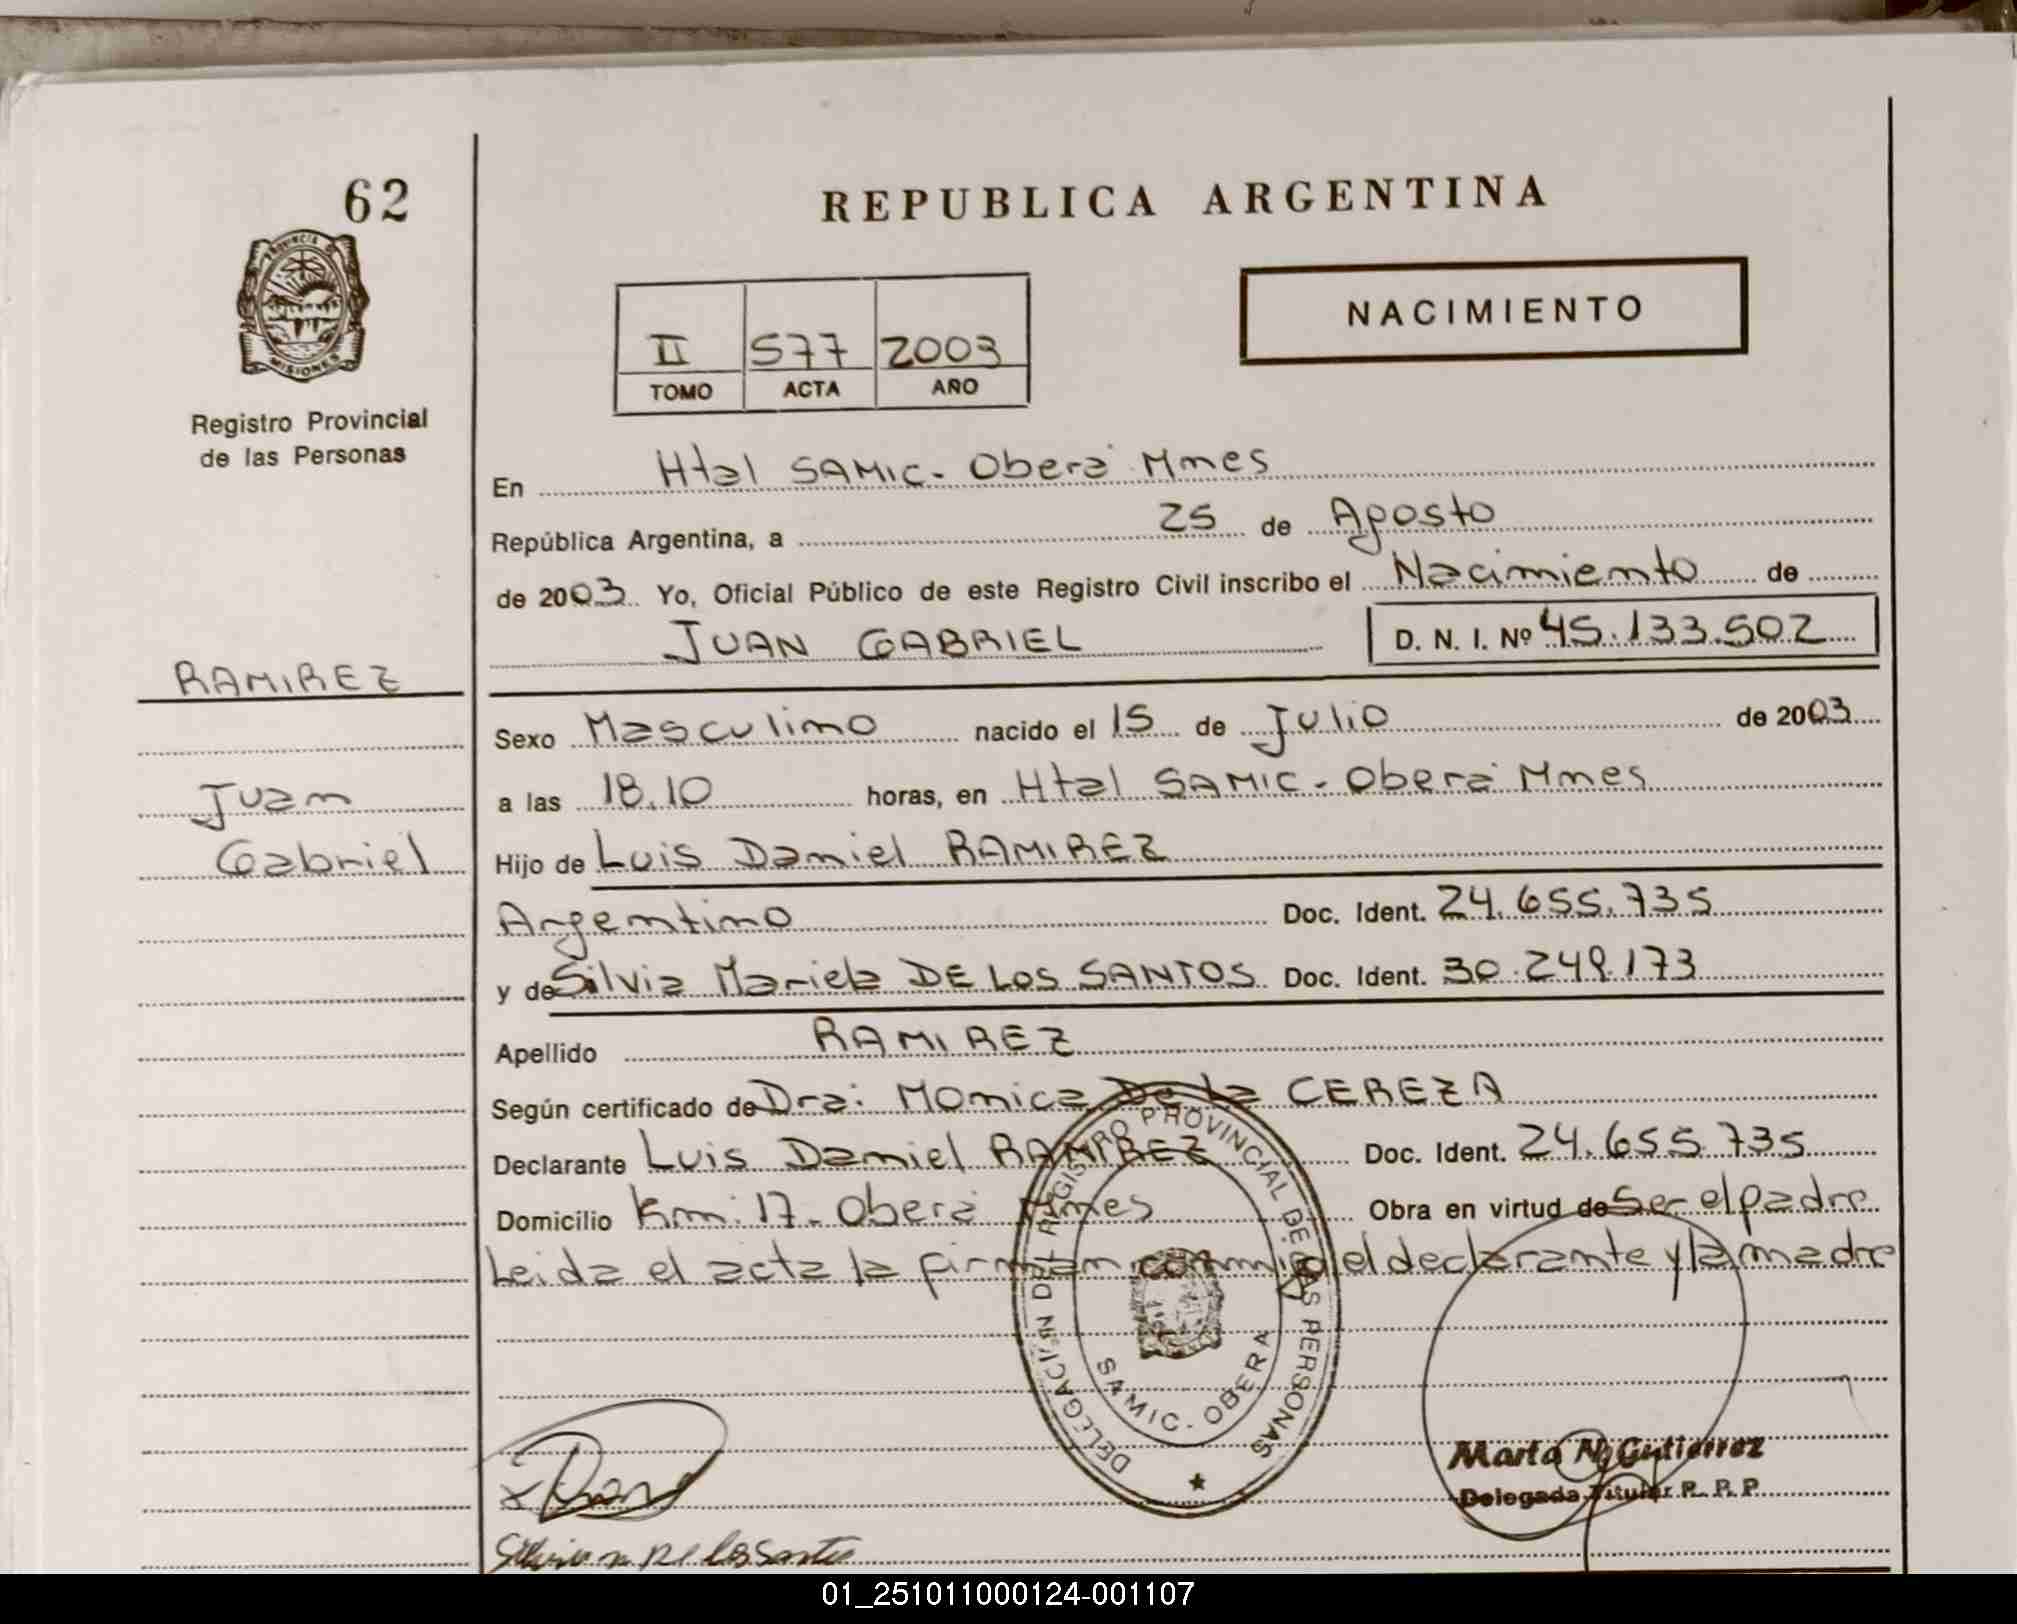 62
REPUBLICA ARGENTINA
PROVINCIA DE
MISIONES
Registro Provincial
de las Personas
NACIMIENTO
II 577 2003
TOMO ACTA AÑO
En Htal SAMIC - Oberá Mnes
República Argentina, a 25 de Agosto
de 2003 Yo, Oficial Público de este Registro Civil inscribo el Nacimiento de
JUAN GABRIEL D. N. I. Nº 45.133.502
RAMIREZ
Juan
Gabriel
Sexo Masculino nacido el 15 de Julio de 2003
a las 18.10 horas, en Htal SAMIC - Oberá Mnes
Hijo de Luis Daniel RAMIREZ
Argentino Doc. Ident. 24.655.735
y de Silvia Mariela DE LOS SANTOS Doc. Ident. 30.249.173
Apellido RAMIREZ
Según certificado de Dra: Monica De la CEREZA
Declarante Luis Daniel RAMIREZ Doc. Ident. 24.655.735
Domicilio Km: 17 - Oberá Mnes Obra en virtud de Ser el padre
Leida el acta la firman conmigo el declarante y la madre
DELEGACION DEL REGISTRO PROVINCIAL DE LAS PERSONAS
SAMIC - OBERA
Marta N. Gutierrez
Delegada Titular R. P. P.
Silvia m De los Santos
01_251011000124-001107